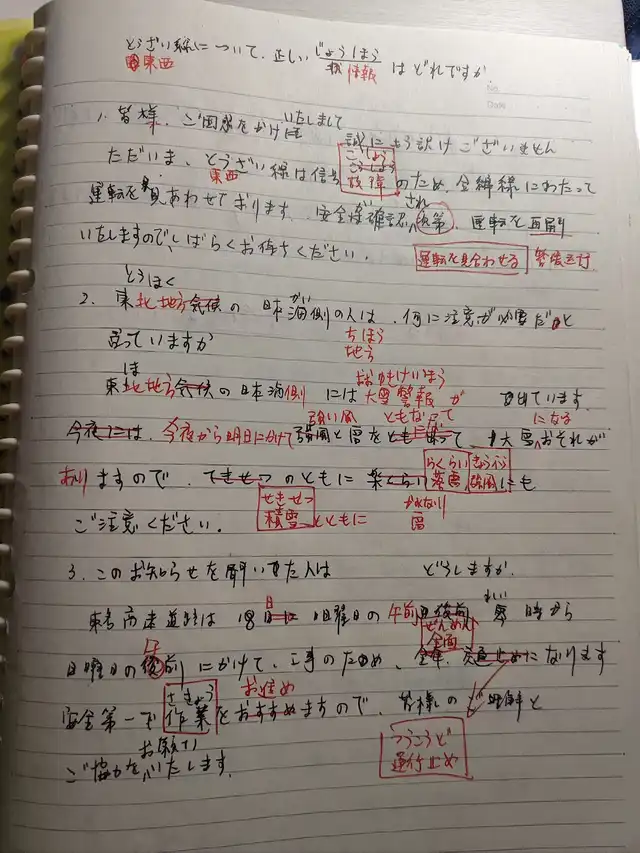 とうざい線について、正しいじょうほうはどれですか
東西 情報
1. 皆様、ご困惑をかけ いたしまして
誠にもう訳けございません
ただいま、とうざい線は信号 のため、全線にわたって
東西 こしょう 故障
運転を見あわせております。安全確認 され 次第、運転を再開
いたしますので、しばらくお待ちください。
運転を見合わせる
とうほく
2. 東北地方気候の日本海側の人は、何に注意が必要だと
かい
言っていますか
ちほう
地方
は おおゆきけいほう
東北地方気候の日本海側には大雪警報が 出ています
強い風 ともなって になる
今夜には、今夜から明日にかけて強風と雪をとも って、大雪おそれが
らくらい きょうふう
ありますので、てきせつのともに楽くらい落雷強風にも
せきせつ
積雪とともに
かみなり
雷
ご注意ください。
3. このお知らせを聞いた人は どうしますか。
東名高速道路は18日 日曜日の午前 零時から
れい
ぜんめん
全面
日曜日の 前にかけて、工事のため、全 、交通止めになります
さぎょう お進め
安全第一で作業をおすすめますので、皆様のご理解と
つうこうど
通行止め
お願い
ご協力をいたします。